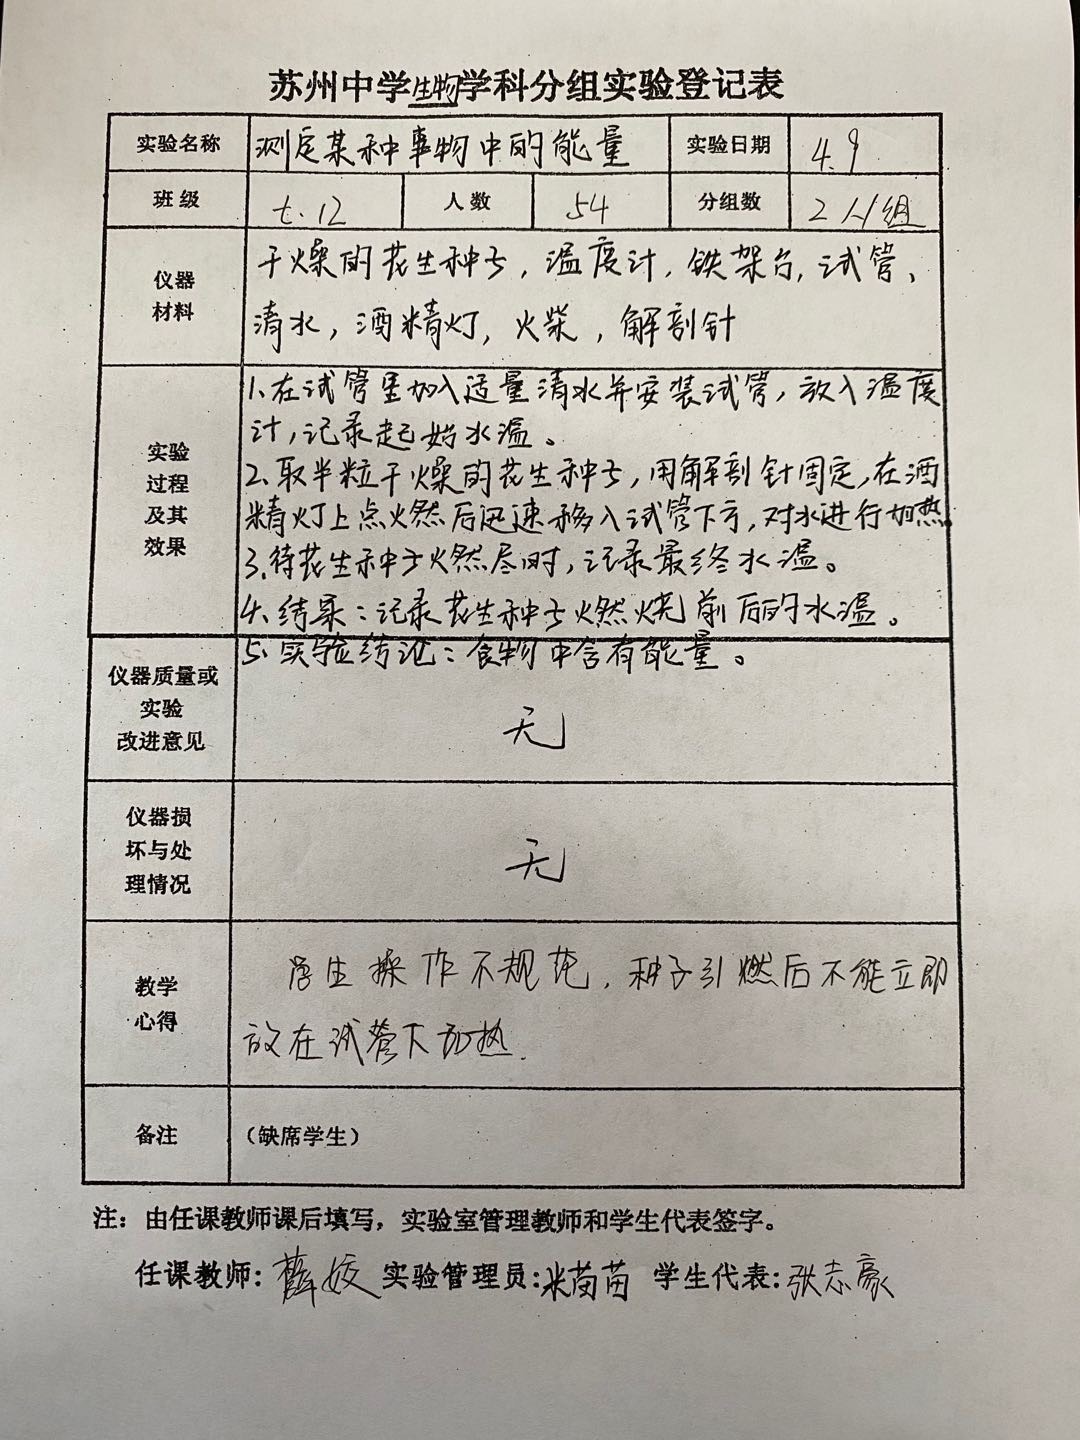 苏州中学生物学科分组实验登记表
实验名称 测定某种事物中的能量 实验日期 4.9
班级 七.12 人数 54 分组数 2人/组
仪器
材料
干燥的花生种子，温度计，铁架台，试管，
清水，酒精灯，火柴，解剖针
实验
过程
及其
效果
1、在试管里加入适量清水并安装试管，放入温度
计，记录起始水温。
2、取半粒干燥的花生种子，用解剖针固定，在酒
精灯上点火然后迅速移入试管下方，对水进行加热
3、待花生种子火燃尽时，记录最终水温。
4、结果：记录花生种子火燃烧前后的水温。
5、实验结论：食物中含有能量。
仪器质量或
实验
改进意见
无
仪器损
坏与处
理情况
无
教学
心得
学生操作不规范，种子引燃后不能立即
放在试管下加热.
备注 （缺席学生）
注：由任课教师课后填写，实验室管理教师和学生代表签字。
任课教师：薛姣 实验管理员：米苗苗 学生代表：张志豪